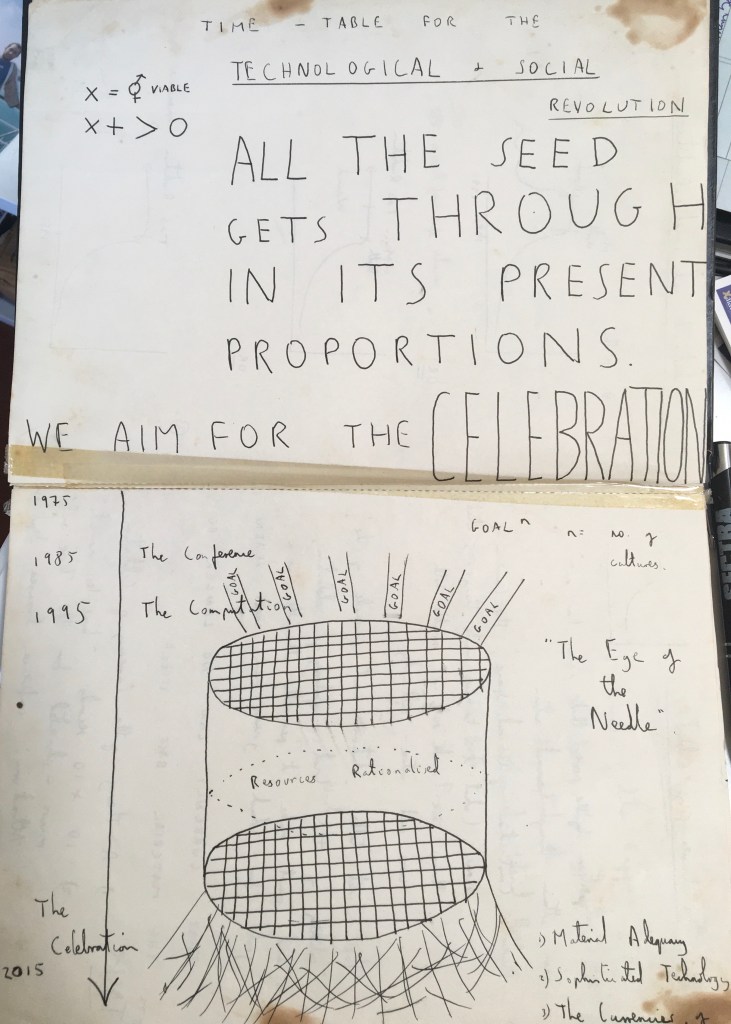 TIME - TABLE FOR THE
TECHNOLOGICAL + SOCIAL
REVOLUTION
X = ⚥ VIABLE
X + > O
ALL THE SEED
GETS THROUGH
IN ITS PRESENT
PROPORTIONS.
WE AIM FOR THE CELEBRATION
1975
GOALⁿ n = no. of
cultures.
1985 The Conference
1995 The Computation
GOAL GOAL GOAL GOAL GOAL GOAL
"The Eye of
the
Needle".
Resources Rationalised
The
Celebration
2015
1) Material Adequacy
2) Sophisticated Technology
3) The Currencies of